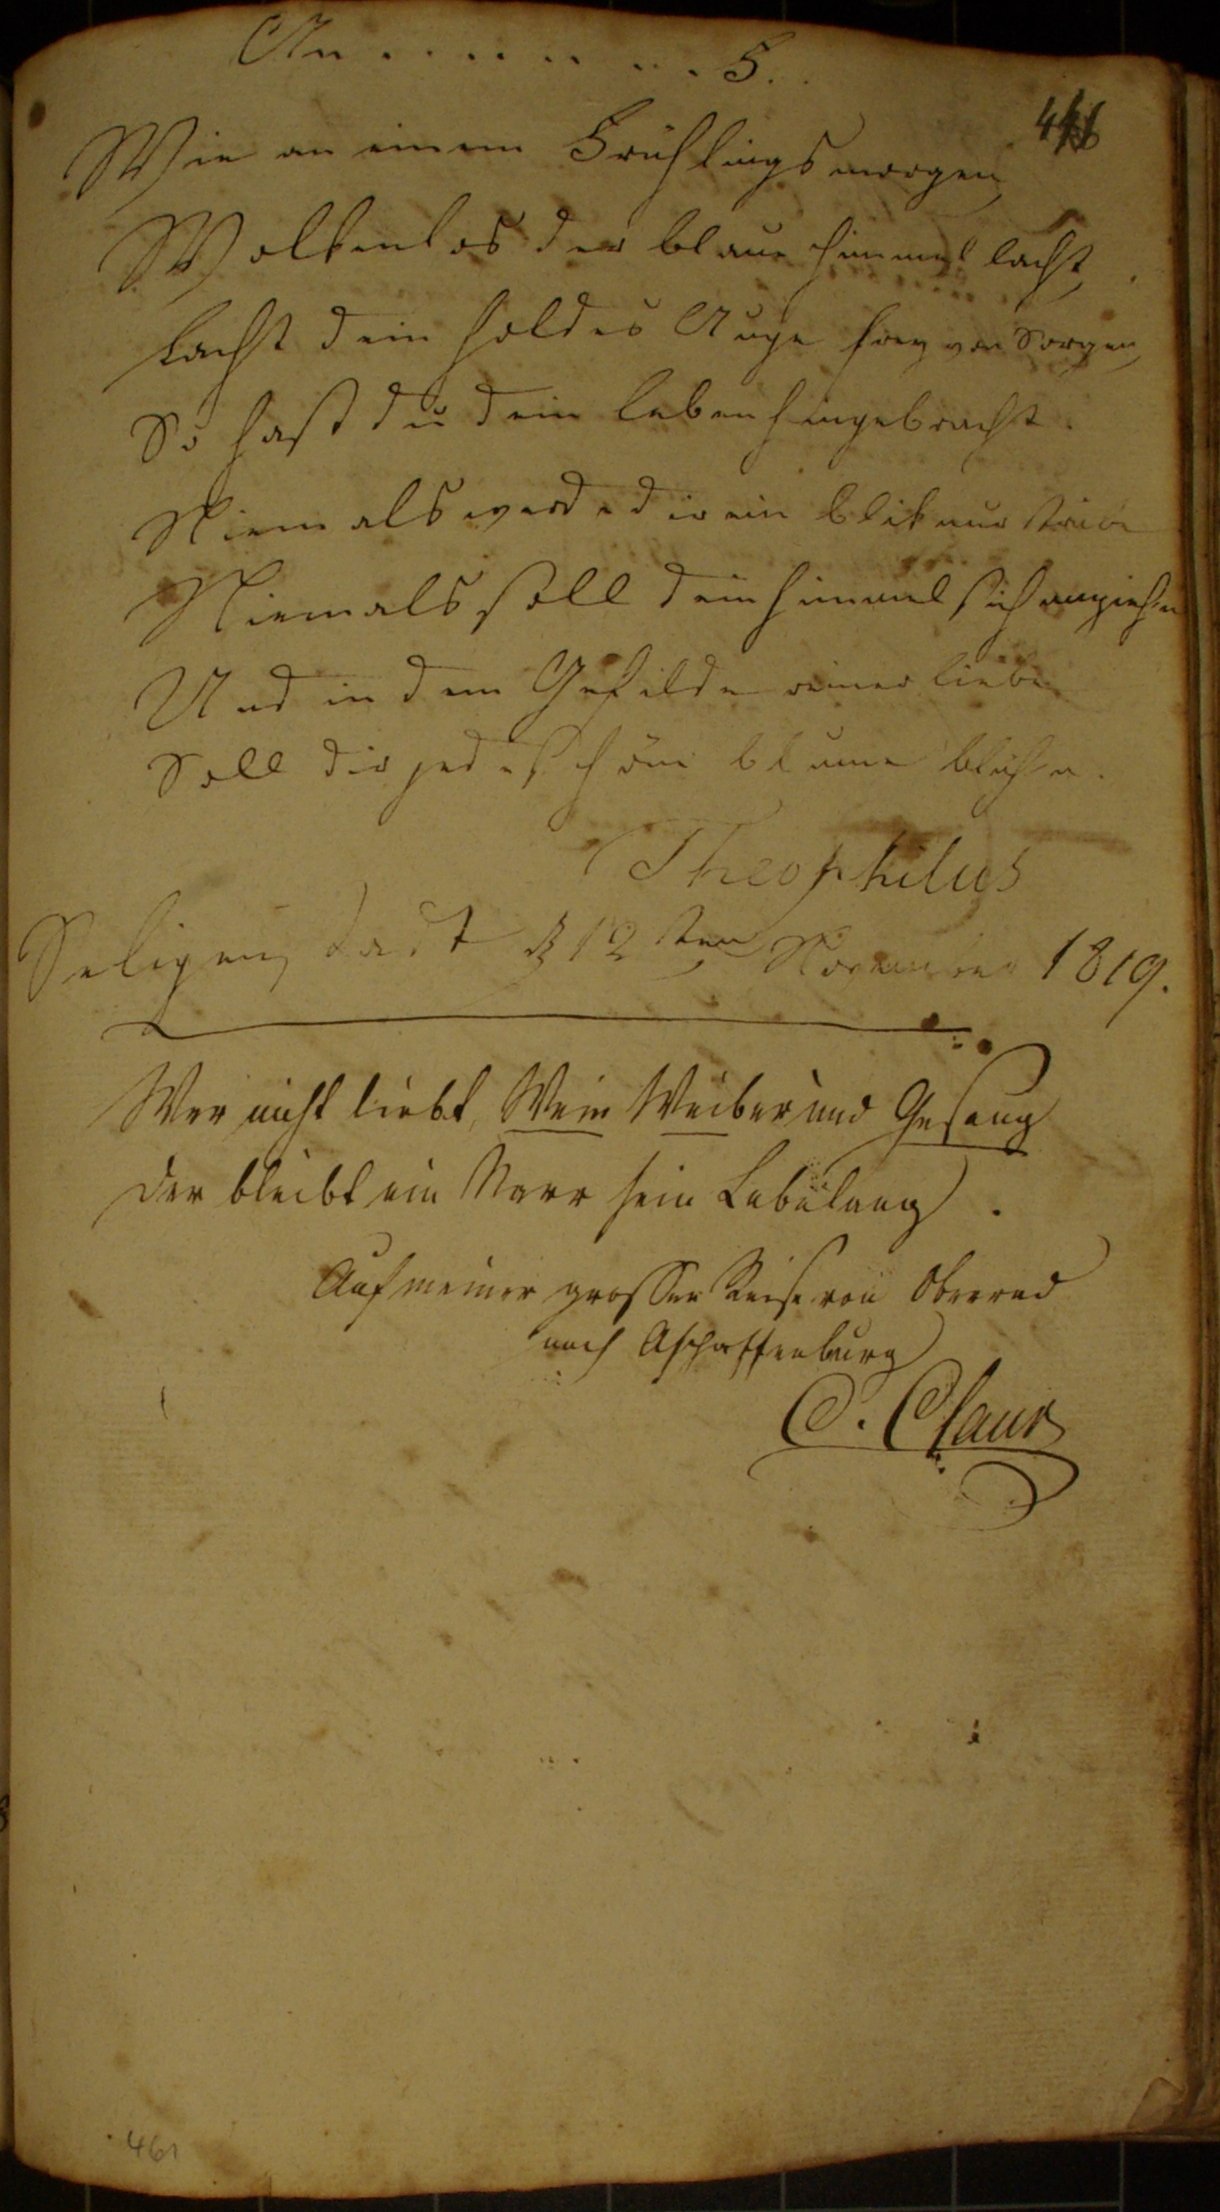 An . . . . . . . . S.
Wie an einem Frühlings morgen
Wolkenlos der blaue himmel lacht,
Lacht dein holdes Auge frey von Sorgen,
So hast du dein leben hingebracht.
Niemals werde dir ein blik nur trübe
Niemals soll dein himmel sich umziehn
Und in dem Gefilde reiner liebe
Soll dir jede schöne blume blühen.
Theophilus
Seligenstadt d 12ten November 1819.
Wer nicht liebt, Wein Weiber und Gesang
der bleibt ein Narr sein Lebelang.
Auf meiner grossen Reise von Oberrad
nach Aschaffenburg
C. Claur
461